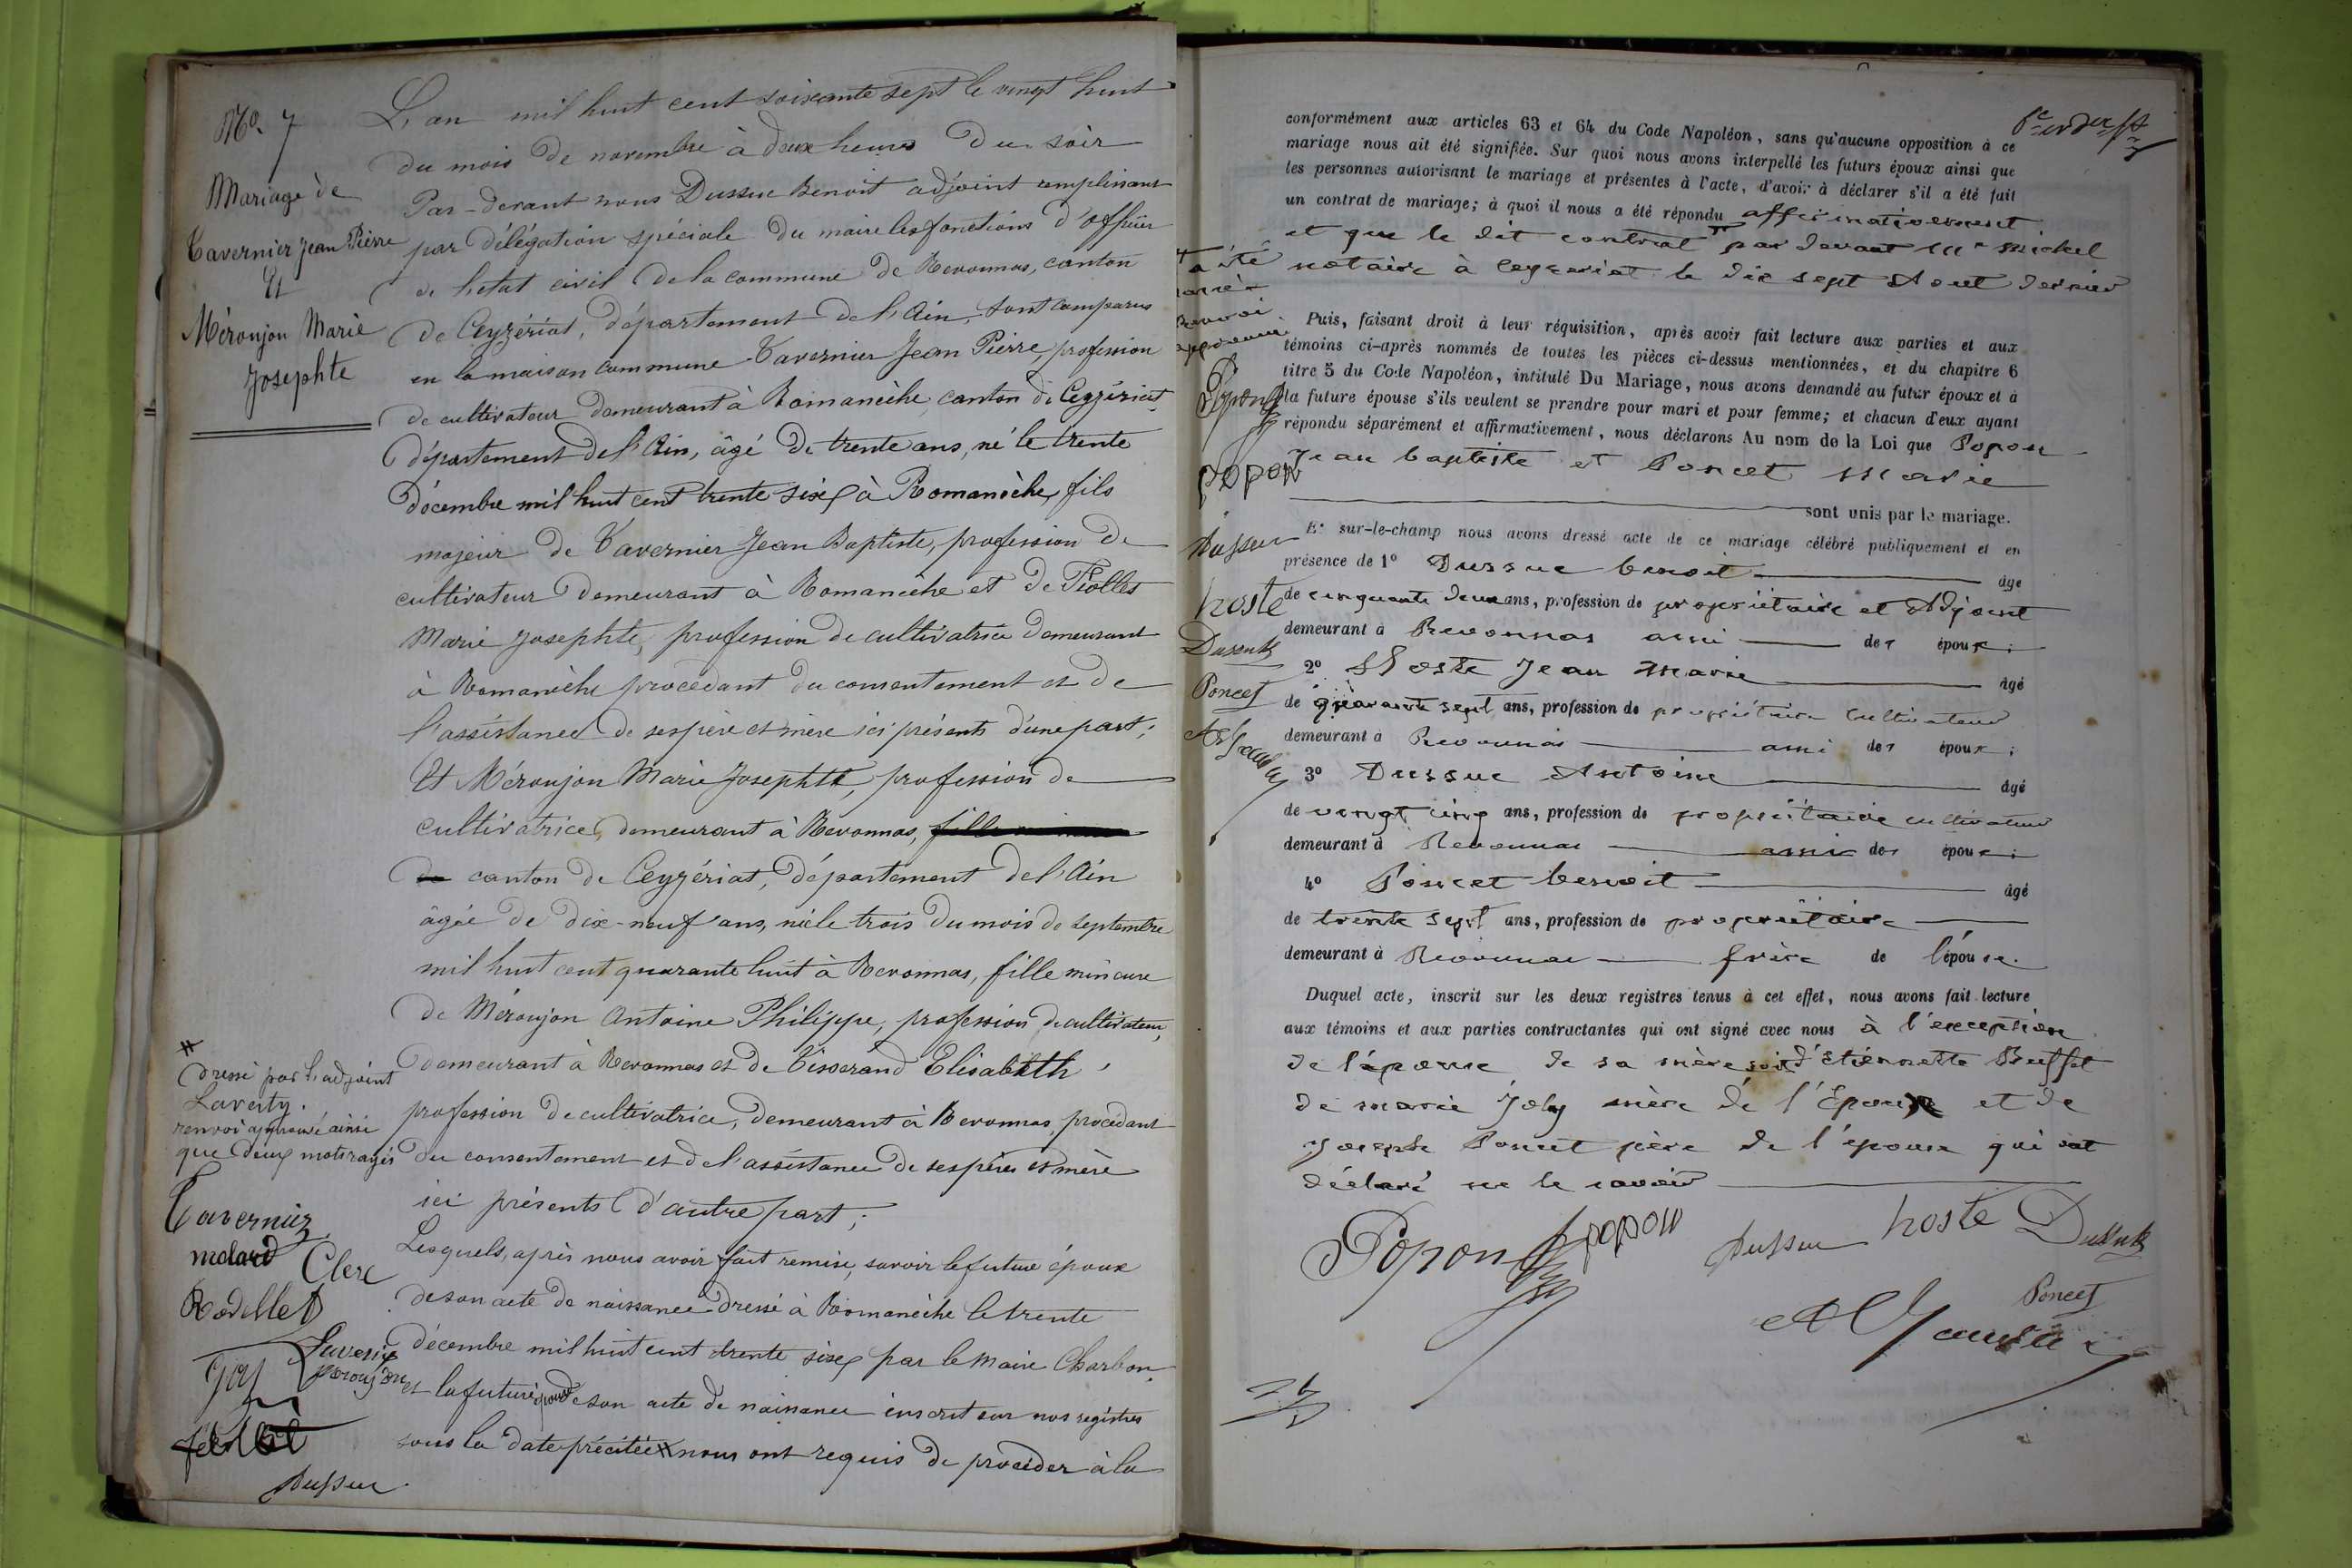 No. 7
Mariage de
Tavernier Jean Pierre
Et
Méroujon Marie
Josephte
L'an mil huit cent soixante sept le vingt huit
du mois de novembre à deux heures du soir
Par-devant nous Dussuc Benoit adjoint remplissant
par délégation spéciale du maire les fonctions d'officier
de l'état civil de la commune de Revonnas, canton
de Ceyzériat, département de l'Ain, sont comparus
en la maison commune Tavernier Jean Pierre, profession
de cultivateur demeurant à Romanèche canton de Ceyzériat,
département de l'Ain, âgé de trente ans, né le trente
décembre mil huit cent trente six à Romanèche, fils
majeur de Tavernier Jean Baptiste, profession de
cultivateur demeurant à Romanèche et de Fiolles
Marie Josephte, profession de cultivatrice demeurant
à Romanèche procédant du consentement et de
l'assistance de ses père et mère ici présents d'une part;
Et Méroujon Marie Josephte, profession de
cultivatrice, demeurant à Revonnas, fille mineure
de canton de Ceyzériat, département de l'Ain
âgée de dix-neuf ans, née le trois du mois de septembre
mil huit cent quarante huit à Revonnas, fille mineure
de Méroujon Antoine Philippe, profession de cultivateur,
demeurant à Revonnas et de Tisserand Elisabeth,
profession de cultivatrice, demeurant à Revonnas procédant
du consentement et de l'assistance de ses pères et mère
ici présents d'autre part;
Lesquels, après nous avoir fait remise, savoir le futur époux
de son acte de naissance dressé à Romanèche le trente
décembre mil huit cent trente six par le maire Charbon,
et la future épouse de son acte de naissance inscrit sur nos registres
sous la date précitée # nous ont requis de procéder à la
# dressé par l'adjoint
Laverty.
renvoi approuvé ainsi
que deux mots rayés
Tavernier
molard Clerc
Rodillet
Joly
Dussuc
conformément aux articles 63 et 64 du Code Napoléon, sans qu'aucune opposition à ce
mariage nous ait été signifiée. Sur quoi nous avons interpellé les futurs époux ainsi que
les personnes autorisant le mariage et présentes à l'acte, d'avoir à déclarer s'il a été fait
un contrat de mariage; à quoi il nous a été répondu affirmativement
et que le dit contrat par devant Me Michel
notaire à Ceyzériat le dix sept Aout dernier
a été
passé
Renvoi
approuvé
Popon
popon
Dussuc
hoste
Dussuc
Poncet
Puis, faisant droit à leur réquisition, après avoir fait lecture aux parties et aux
témoins ci-après nommés de toutes les pièces ci-dessus mentionnées, et du chapitre 6
titre 5 du Code Napoléon, intitulé Du Mariage, nous avons demandé au futur époux et à
la future épouse s'ils veulent se prendre pour mari et pour femme; et chacun d'eux ayant
répondu séparément et affirmativement, nous déclarons Au nom de la Loi que Popon
Jean baptiste et Poncet Marie
sont unis par le mariage.
Et sur-le-champ nous avons dressé acte de ce mariage célébré publiquement et en
présence de 1° Dussuc benoit âgé
de cinquante deux ans, profession de propriétaire et Adjoint
demeurant à Revonnas ami des époux;
2° Hoste Jean Marie âgé
de quarante sept ans, profession de propriétaire Cultivateur
demeurant à Revonnas ami des époux;
3° Dussuc Antoine âgé
de vingt cinq ans, profession de propriétaire cultivateur
demeurant à Revonnas ami des époux;
4° Poncet benoit âgé
de trente sept ans, profession de propriétaire
demeurant à Revonnas frère de l'épouse.
Duquel acte, inscrit sur les deux registres tenus à cet effet, nous avons fait lecture
aux témoins et aux parties contractantes qui ont signé avec nous à l'exception
de l'épouse de sa mère d'Etiennette Buffet
de marie Joly mère de l'Epoux et de
Joseph Poncet père de l'épouse qui ont
déclaré ne le savoir
Popon popon Dussuc hoste Dussuc
Poncet